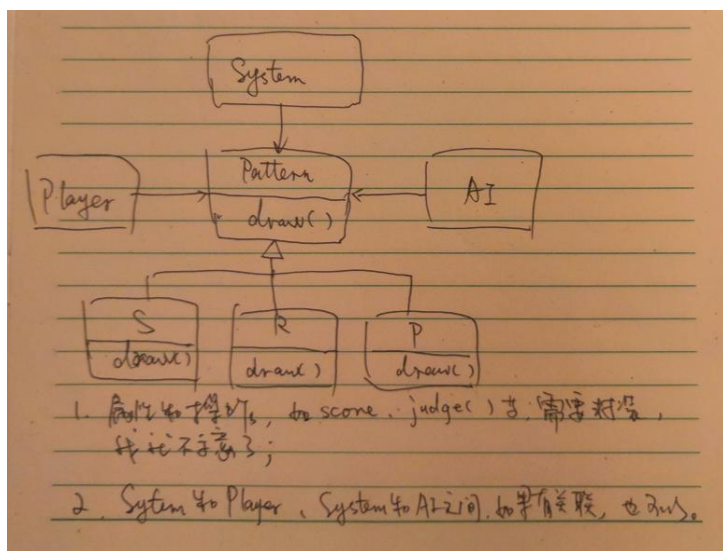 System
Pattern
Player
AI
draw()
S
R
P
draw()
draw()
draw()
1. 属性和操作, 如 score、judge()等, 需要封装,
我就不主意了;
2. Sytem和Player、System和AI之间, 如果有关联, 也可以。